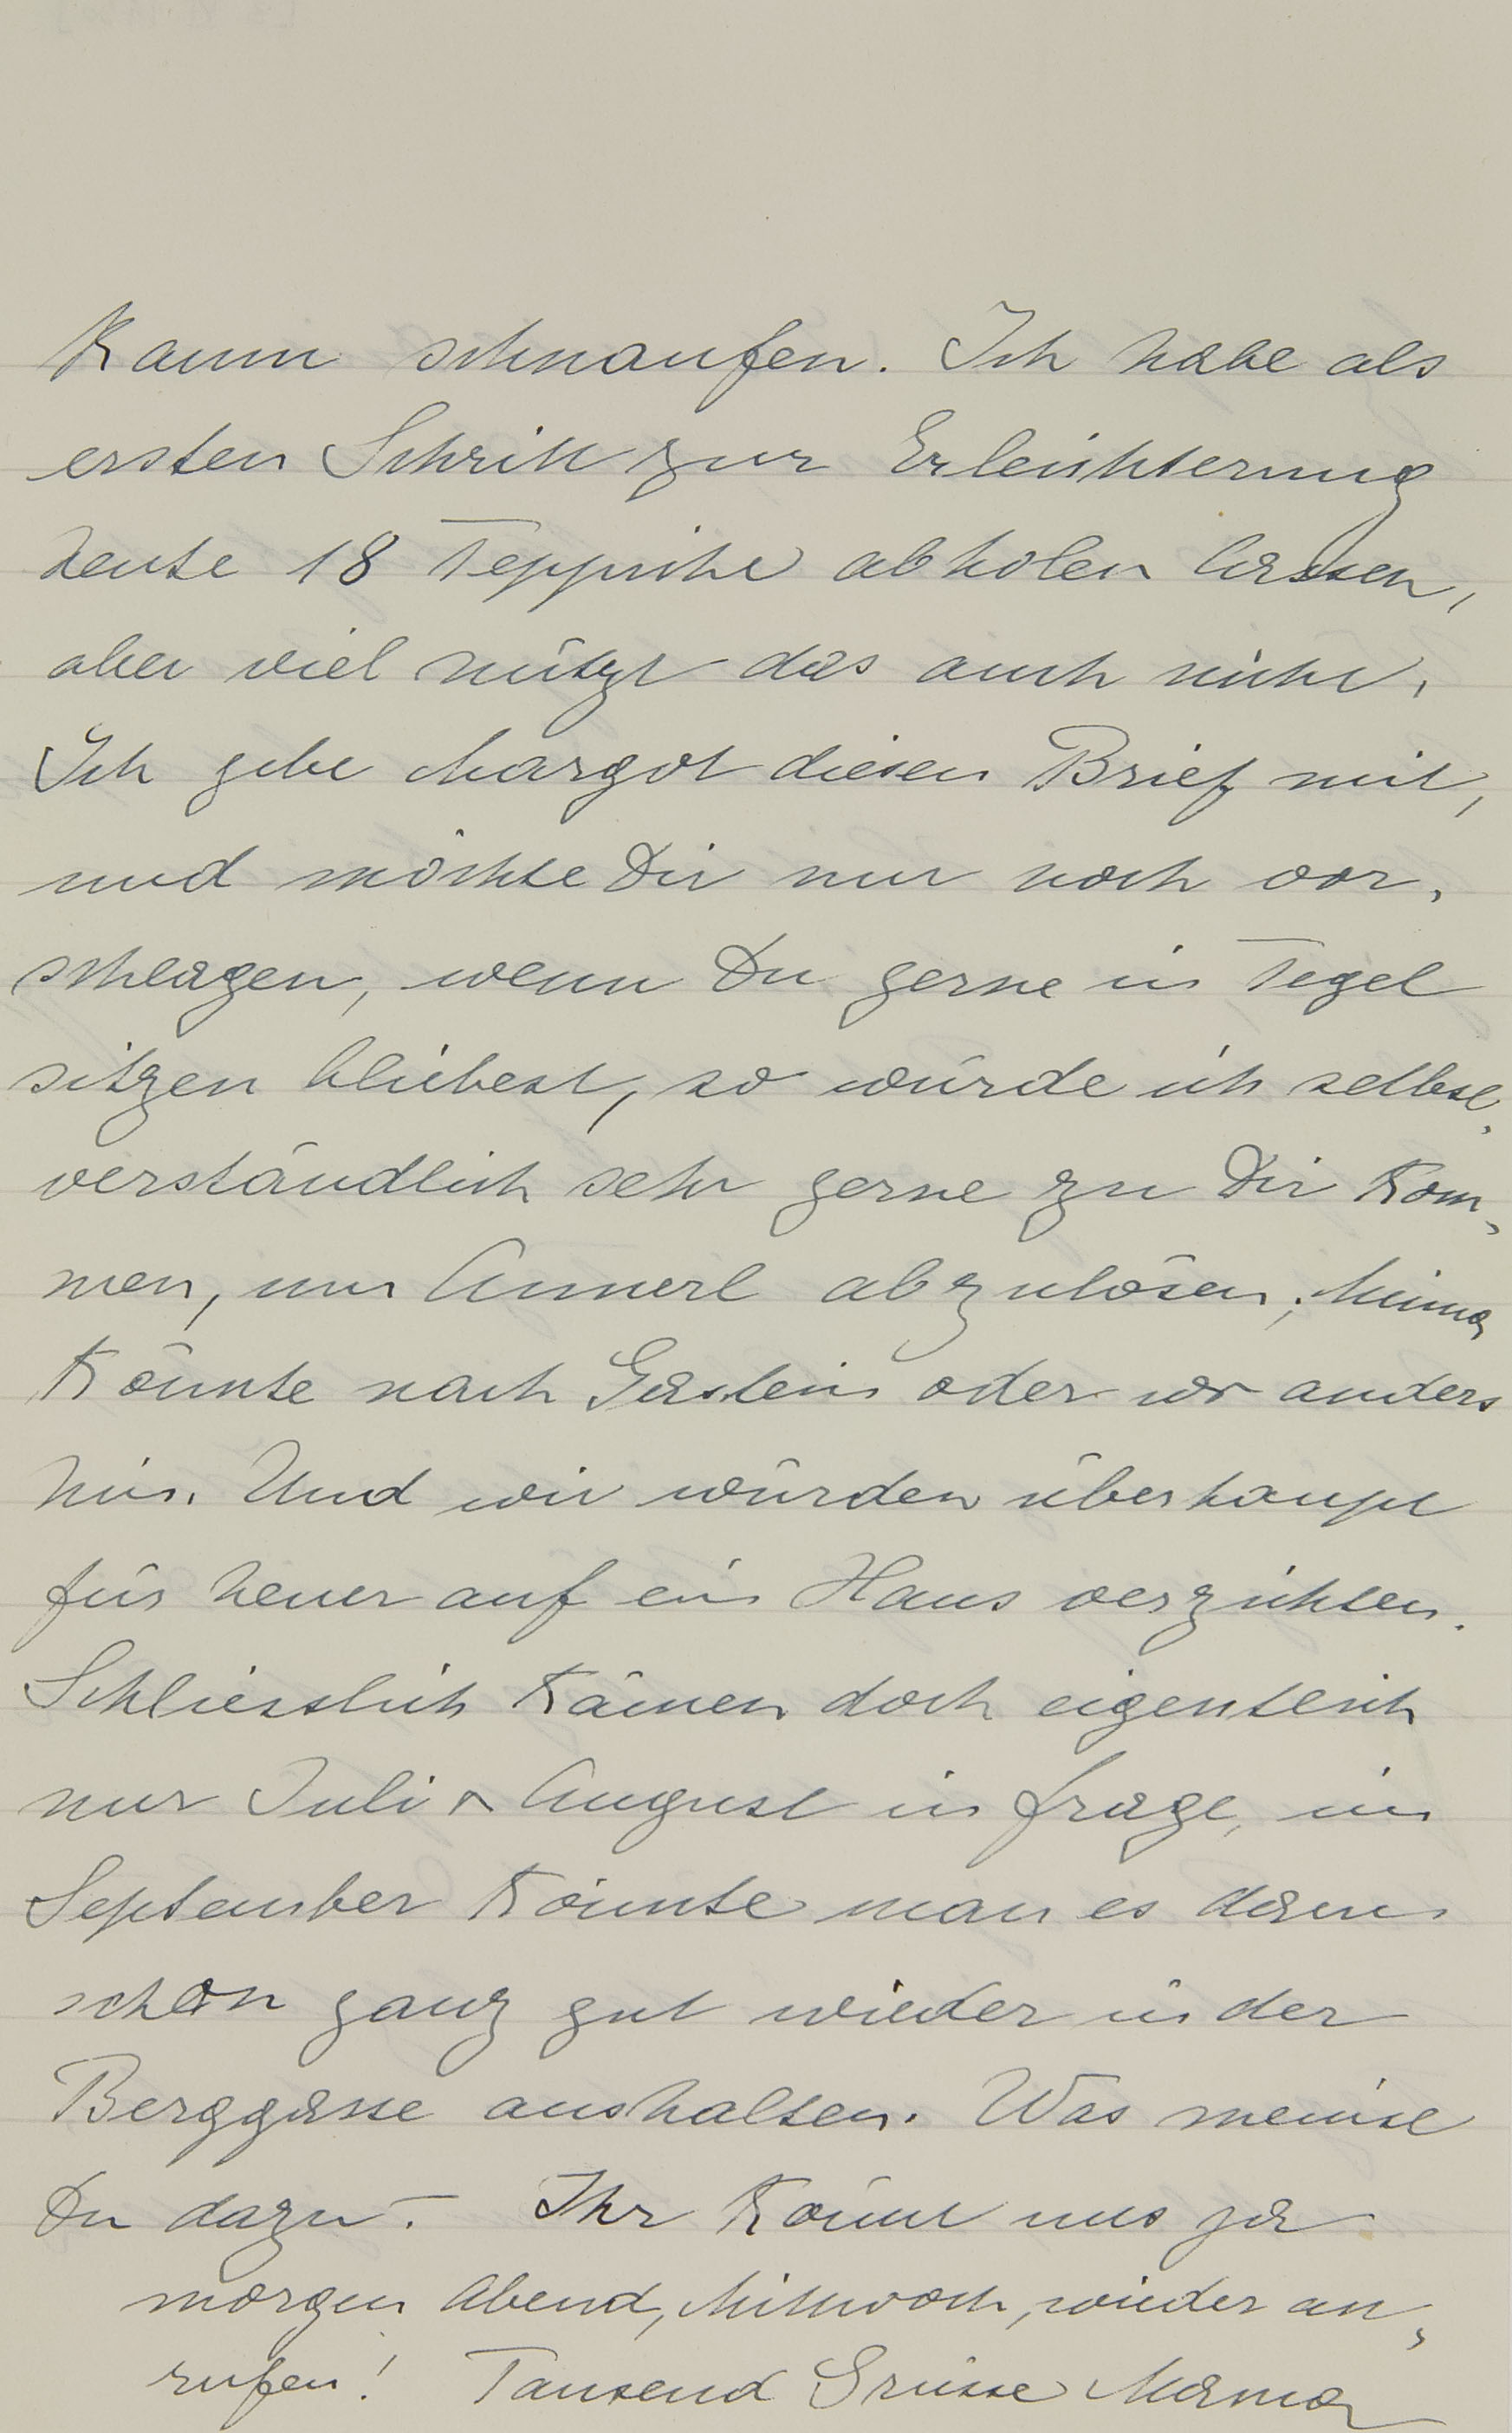 kaum schnaufen. Ich habe als
ersten Schritt zur Erleichterung
heute 18 Teppiche abholen lassen,
aber viel nützt das auch nicht.
Ich gebe Margot diesen Brief mit,
und möchte Dir nur noch vor-
schlagen, wenn Du gerne in Tegel
sitzen bliebest, so würde ich selbst-
verständlich sehr gerne zu Dir kom-
men, um Annerl abzulösen; Minna
könnte nach Gastein oder wo anders
hin. Und wir würden überhaupt
für heuer auf ein Haus verzichten.
Schliesslich kämen doch eigentlich
nur Juli & August in Frage, im
September könnte man es dann
schon ganz gut wieder in der
Berggasse aushalten. Was meinst
Du dazu? Ihr könnt uns ja
morgen Abend, Mittwoch, wieder an-
rufen! Tausend Grüsse Mama